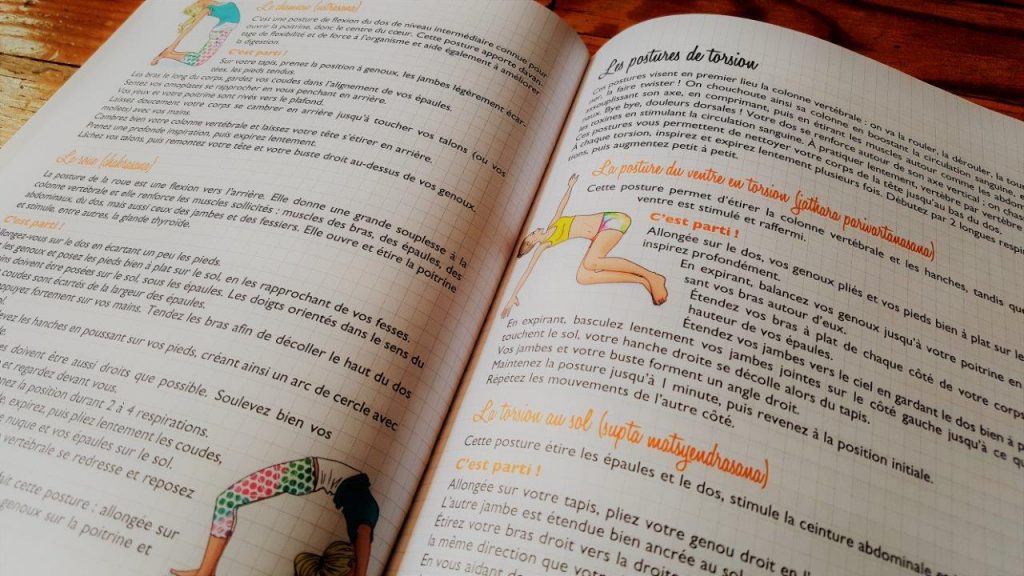 Le chameau (ustrasana)
C'est une posture de flexion du dos de niveau intermédiaire conçue pour
ouvrir la poitrine, donc le centre du cœur. Cette posture apporte davan-
tage de flexibilité et de force à l'organisme et aide également à améliorer
la digestion.
C'est parti !
Sur votre tapis, prenez la position à genoux, les jambes légèrement écar-
tées, les pieds tendus.
Les bras le long du corps, gardez vos coudes dans l'alignement de vos épaules.
Sentez vos omoplates se rapprocher en vous penchant en arrière.
Vos yeux et votre poitrine sont rivés vers le plafond.
Laissez doucement votre corps se cambrer en arrière jusqu'à toucher vos talons (ou vos
mollets) avec vos mains.
Cambrez bien votre colonne vertébrale et laissez votre tête s'étirer en arrière.
Prenez une profonde inspiration, puis expirez lentement.
Lâchez vos talons, puis remontez votre tête et votre buste droit au-dessus de vos genoux.
La roue (chakrasana)
La posture de la roue est une flexion vers l'arrière. Elle donne une grande souplesse à la
colonne vertébrale et elle renforce les muscles sollicités : muscles des bras, des épaules, des
abdominaux, du dos, mais aussi ceux des jambes et des fessiers. Elle ouvre et étire la poitrine
et stimule, entre autres, la glande thyroïde.
C'est parti !
Allongez-vous sur le dos en écartant un peu les pieds.
les genoux et posez les pieds bien à plat sur le sol, en les rapprochant de vos fesses.
doivent être posées sur le sol, sous les épaules. Les doigts orientés dans le sens du
coudes sont écartés de la largeur des épaules.
appuyez fortement sur vos mains. Tendez les bras afin de décoller le haut du dos
les hanches en poussant sur vos pieds, créant ainsi un arc de cercle avec
doivent être aussi droits que possible. Soulevez bien vos
et regardez devant vous.
la position durant 2 à 4 respirations.
expirez, puis pliez lentement les coudes,
nuque et vos épaules sur le sol.
vertébrale se redresse et reposez
cette posture : allongée sur
genoux sur la poitrine et
Les postures de torsion
Ces postures visent en premier lieu la colonne vertébrale : on va la rouler, la dérouler, la
la faire twister ! On chouchoute ainsi sa colonne, en bostant la circulation sanguine,
assouplissant son axe, en comprimant, puis en étirant les muscles autour de
Bye bye, douleurs dorsales ! Votre dos se renforce tout comme vos
les toxines en stimulant la circulation sanguine. À pratiquer
Ces postures vous permettent de nettoyer votre corps de la tête jusqu'au bas du dos.
À chaque torsion, inspirez et expirez lentement plusieurs fois. Débutez par 2 longues respira-
tions, puis augmentez petit à petit.
La posture du ventre en torsion (jathara parivartanasana)
Cette posture permet d'étirer la colonne vertébrale et les hanches, tandis que
ventre est stimulé et raffermi.
C'est parti !
Allongée sur le dos, vos genoux pliés et vos pieds bien à plat sur le
inspirez profondément.
En expirant, balancez vos genoux jusqu'à votre poitrine en
sant vos bras autour d'eux.
Étendez vos bras à plat de chaque côté de votre corps
hauteur de vos épaules.
Étendez vos jambes vers le ciel en gardant le dos bien à
En expirant, basculez lentement vos jambes jointes sur le côté gauche jusqu'à ce qu
touchent le sol, votre hanche droite se décolle alors du tapis.
Vos jambes et votre buste forment un angle droit.
Maintenez la posture jusqu'à 1 minute, puis revenez à la position initiale.
Répétez les mouvements de l'autre côté.
La torsion au sol (supta matsyendrasana)
Cette posture étire les épaules et le dos, stimule la ceinture abdominale
C'est parti !
Allongée sur votre tapis, pliez votre genou droit en
L'autre jambe est étendue bien ancrée au sol
Étirez votre bras droit vers la droite
la même direction que votre
En vous aidant de